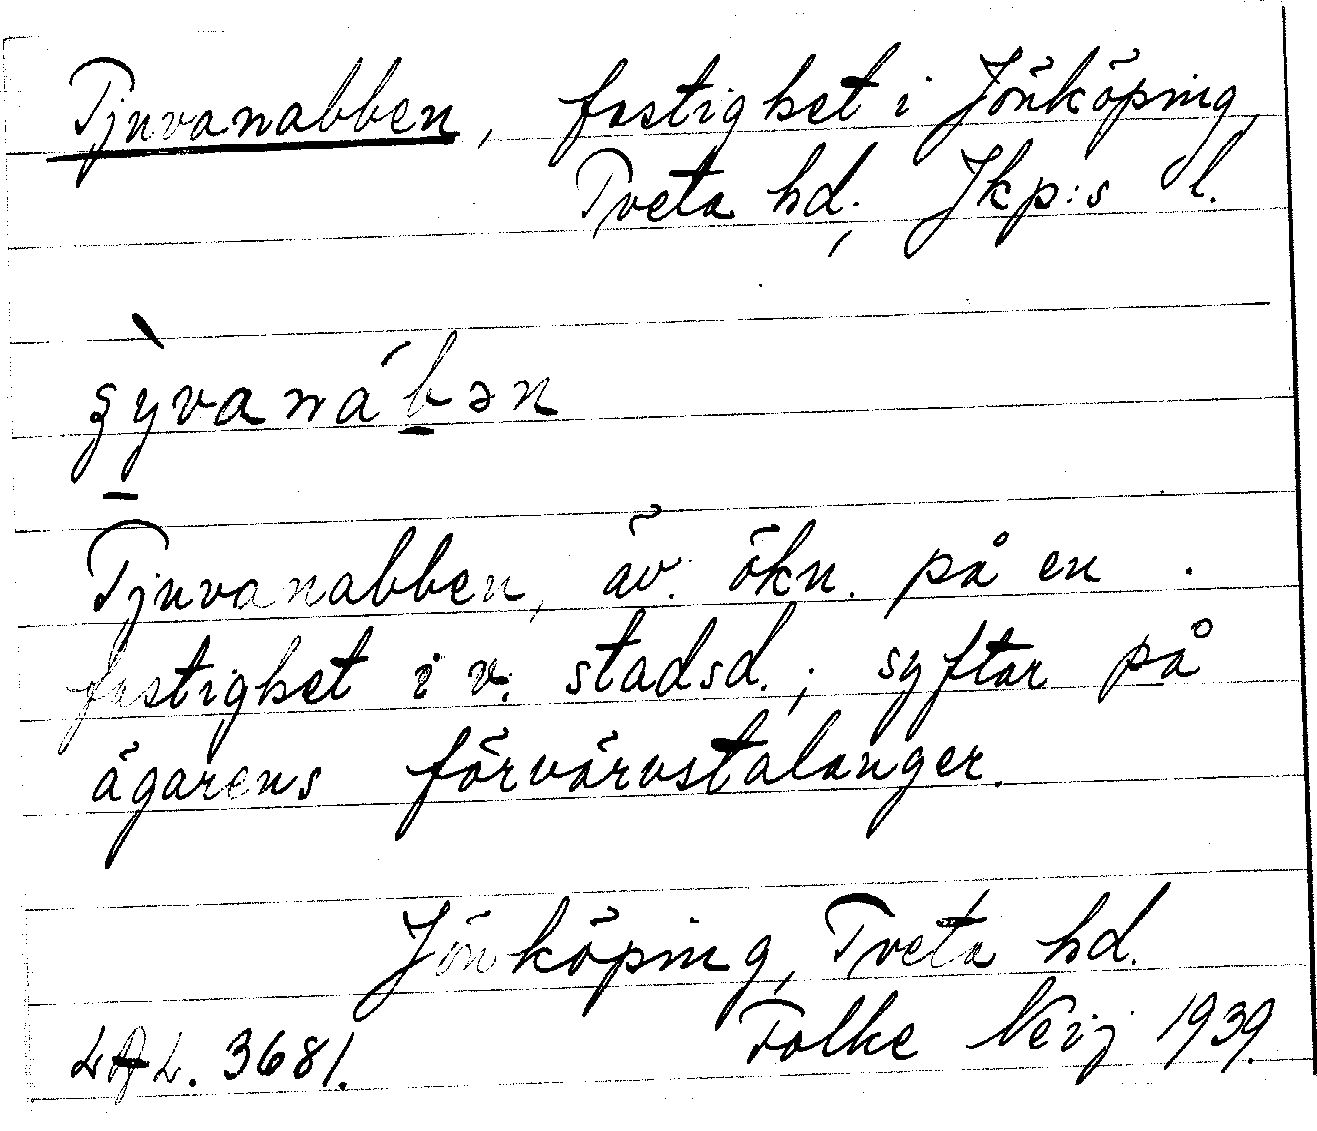 Tjuvanabben, fastighet i Jönköping,
Tveta hd, Jkp:s l.
Tjuvanabben, äv. ökn. på en
fastighet i v. stadsd.; syftar på
ägarens förvärvstalanger.
Jönköping, Tveta hd.
3681. Folke Neij 1939.